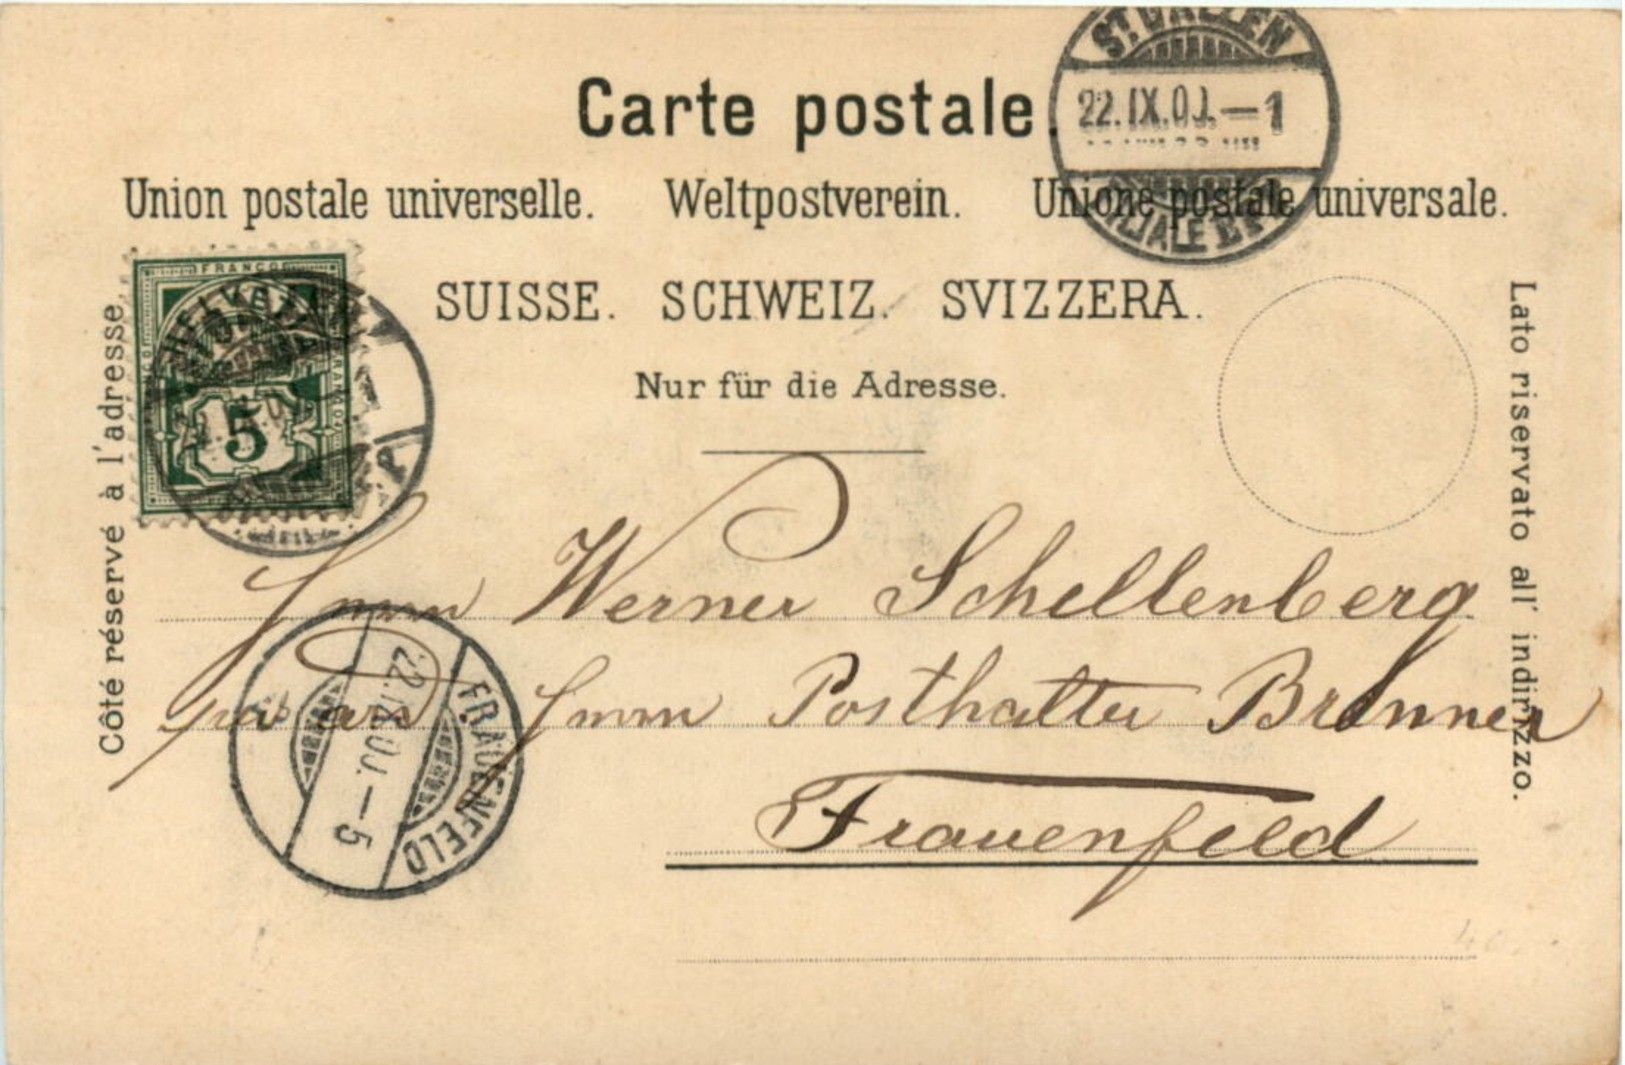 Carte postale.
ST. GALLEN
22.IX.0J.—1
FILIALE B
Union postale universelle. Weltpostverein. Unione postale universale.
SUISSE. SCHWEIZ. SVIZZERA.
Nur für die Adresse.
Côté réservé à l'adresse.
Lato riservato all' indirizzo.
FRANCO
5
Herrn Werner Schellenberg
Herrn Posthalter Brenner
Frauenfeld
FRAUENFELD
22.IX.0J.—5